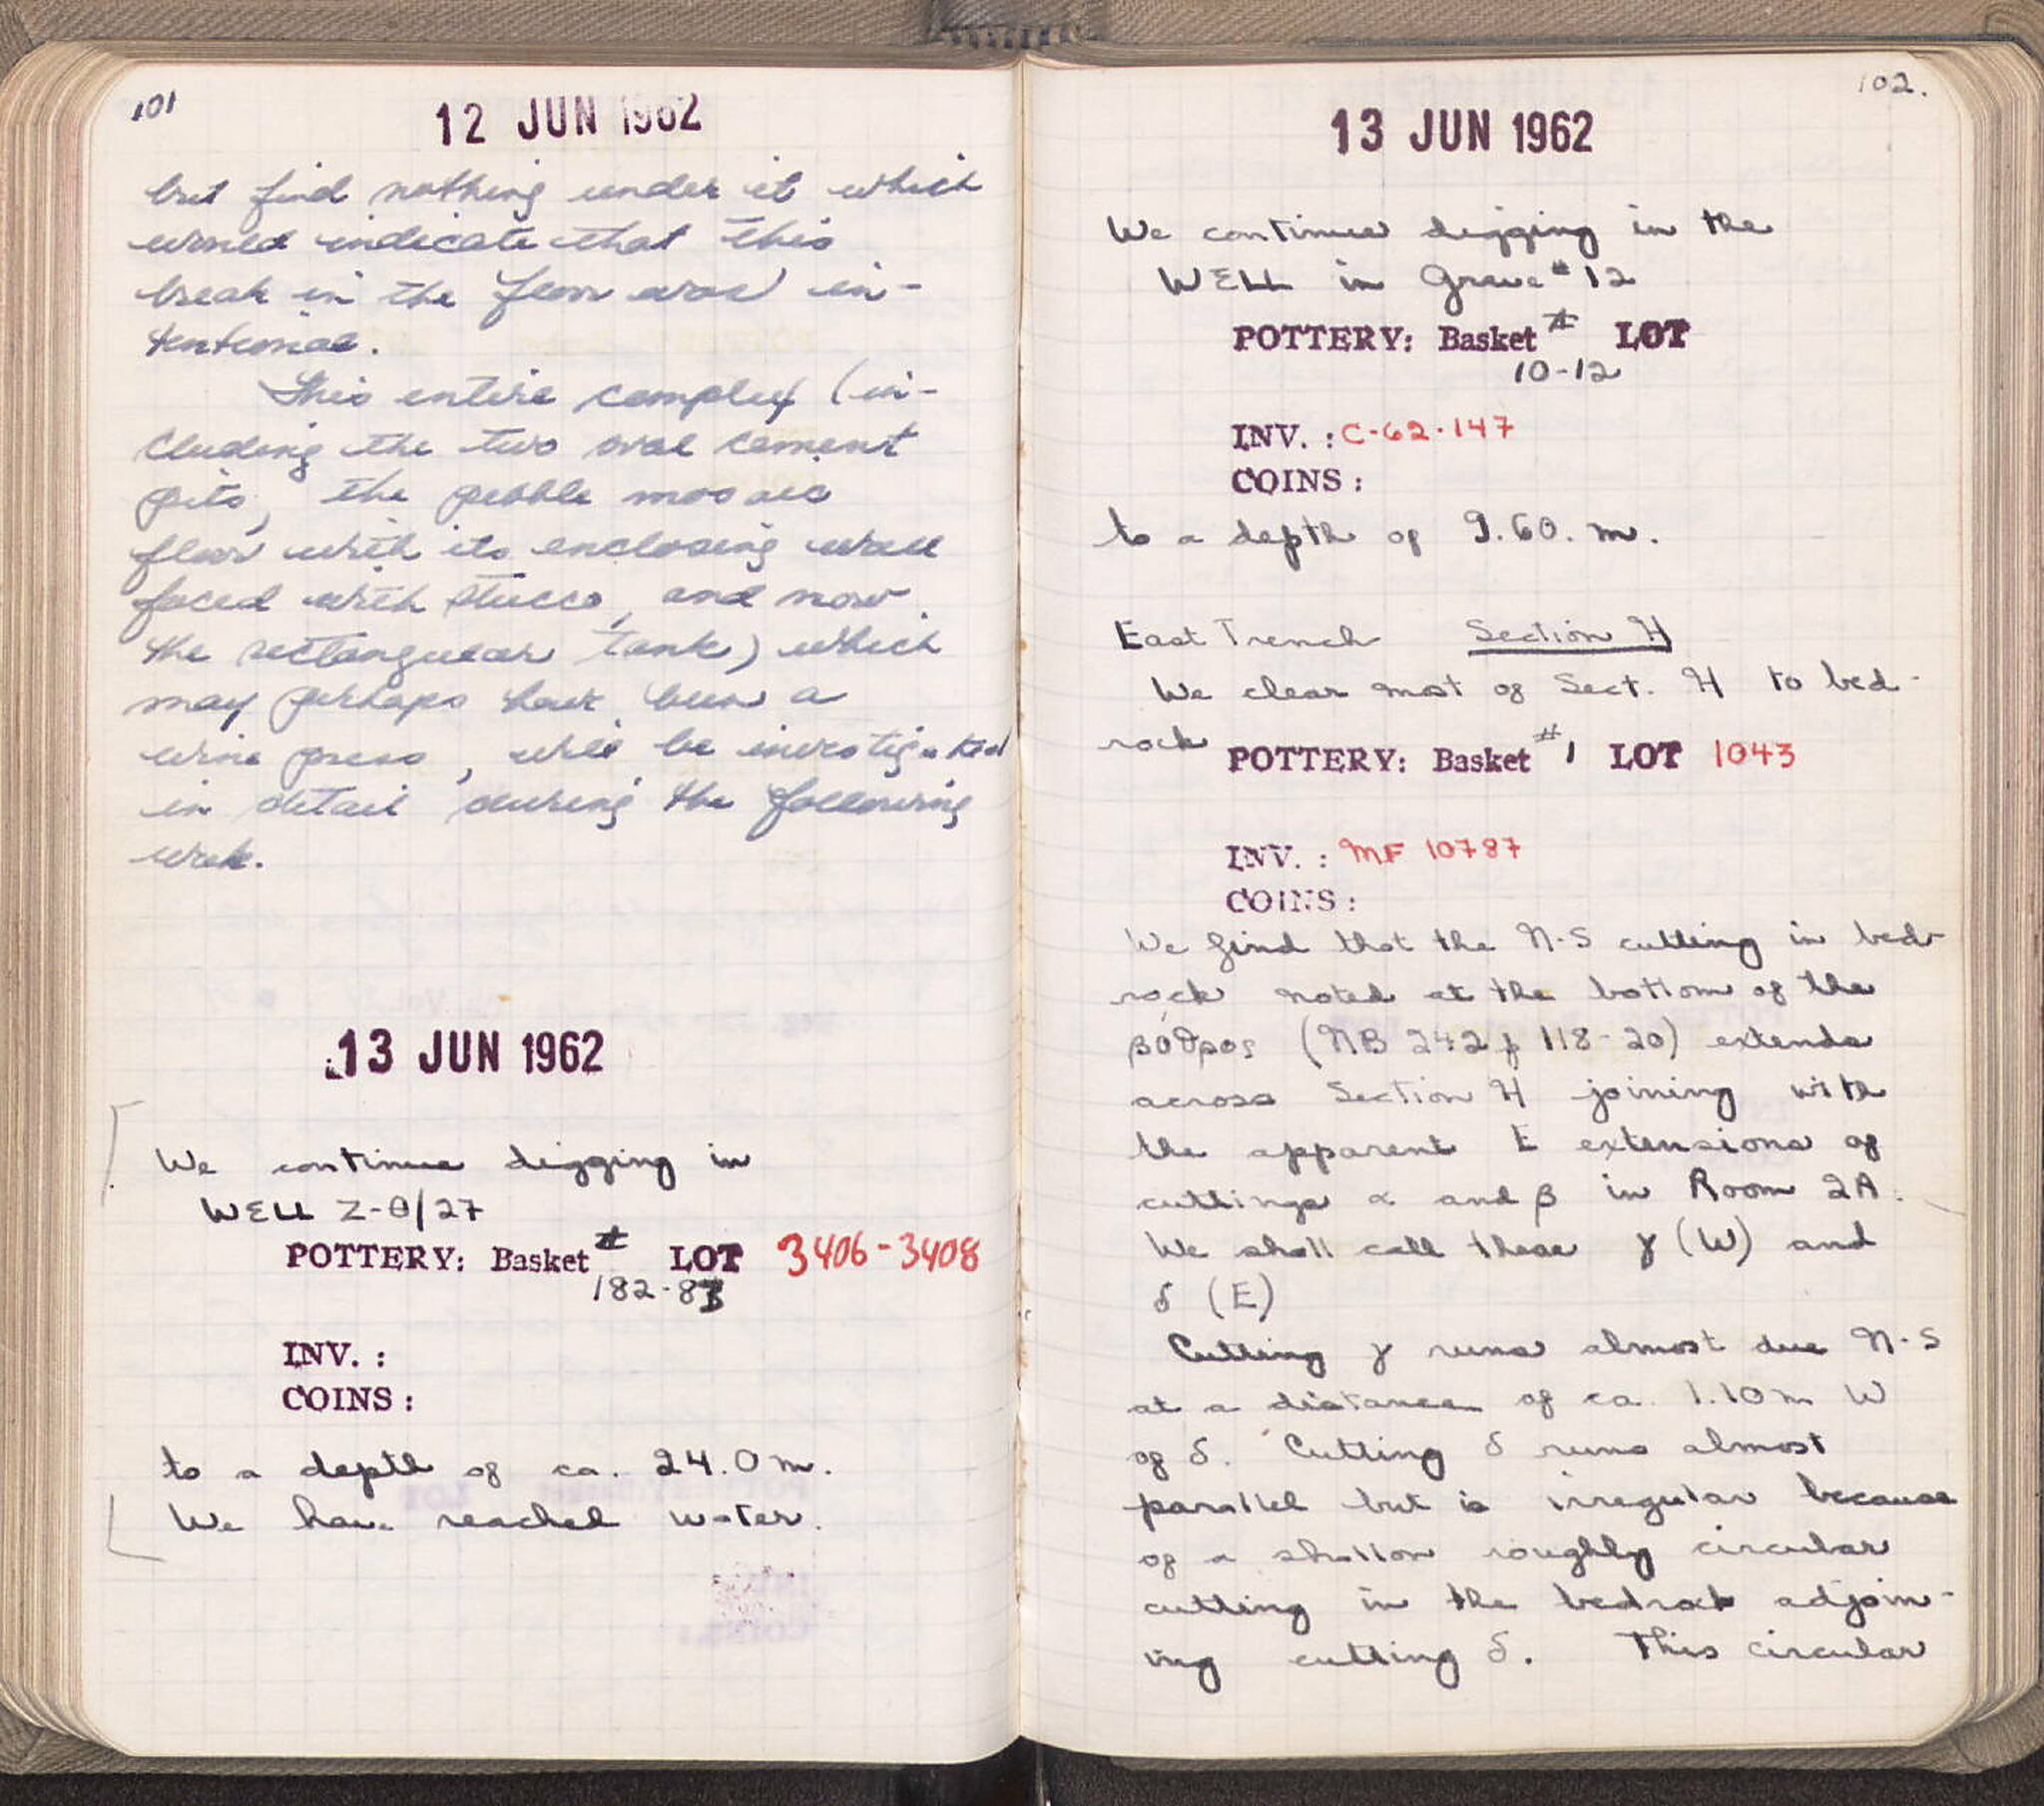 101
12 JUN 1962
but find nothing under it which
would indicate that this
break in the floor was in-
tentional.
This entire complex (in-
cluding the two oval cement
pits, the pebble mosaic
floor with its enclosing wall
faced with stucco, and now
the rectangular tank) which
may perhaps have been a
wine press, will be investigated
in detail during the following
week.
13 JUN 1962
We continue digging in
WELL Z-Θ/27
POTTERY: Basket # LOT 3406-3408
182-83
INV. :
COINS :
to a depth of ca. 24.0 m.
We have reached water.
102.
13 JUN 1962
We continue digging in the
WELL in Grave #12
POTTERY: Basket # LOT
10-12
INV. : C-62-147
COINS :
to a depth of 9.60. m.
East Trench Section H
We clear most of Sect. H to bed-
rock
POTTERY: Basket #1 LOT 1043
INV. : MF 10787
COINS :
We find that the N-S cutting in bed-
rock noted at the bottom of the
βόθρος (NB 242 p 118-20) extends
across Section H joining with
the apparent E extensions of
cuttings α and β in Room 2A.
We shall call these γ (W) and
δ (E)
Cutting γ runs almost due N-S
at a distance of ca. 1.10 m W
of δ. Cutting δ runs almost
parallel but is irregular because
of a shallow roughly circular
cutting in the bedrock adjoin-
ing cutting δ. This circular